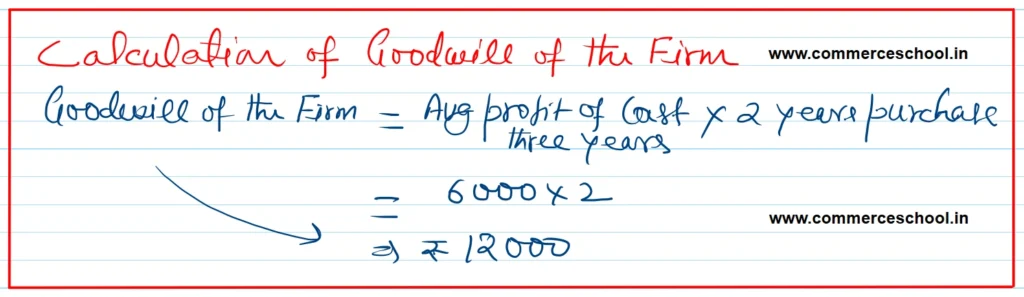 Calculation of Goodwill of the Firm www.commerceschool.in
Goodwill of the Firm = Avg profit of last × 2 years purchase
three years
= 6000 × 2
www.commerceschool.in
⇒ ₹ 12000